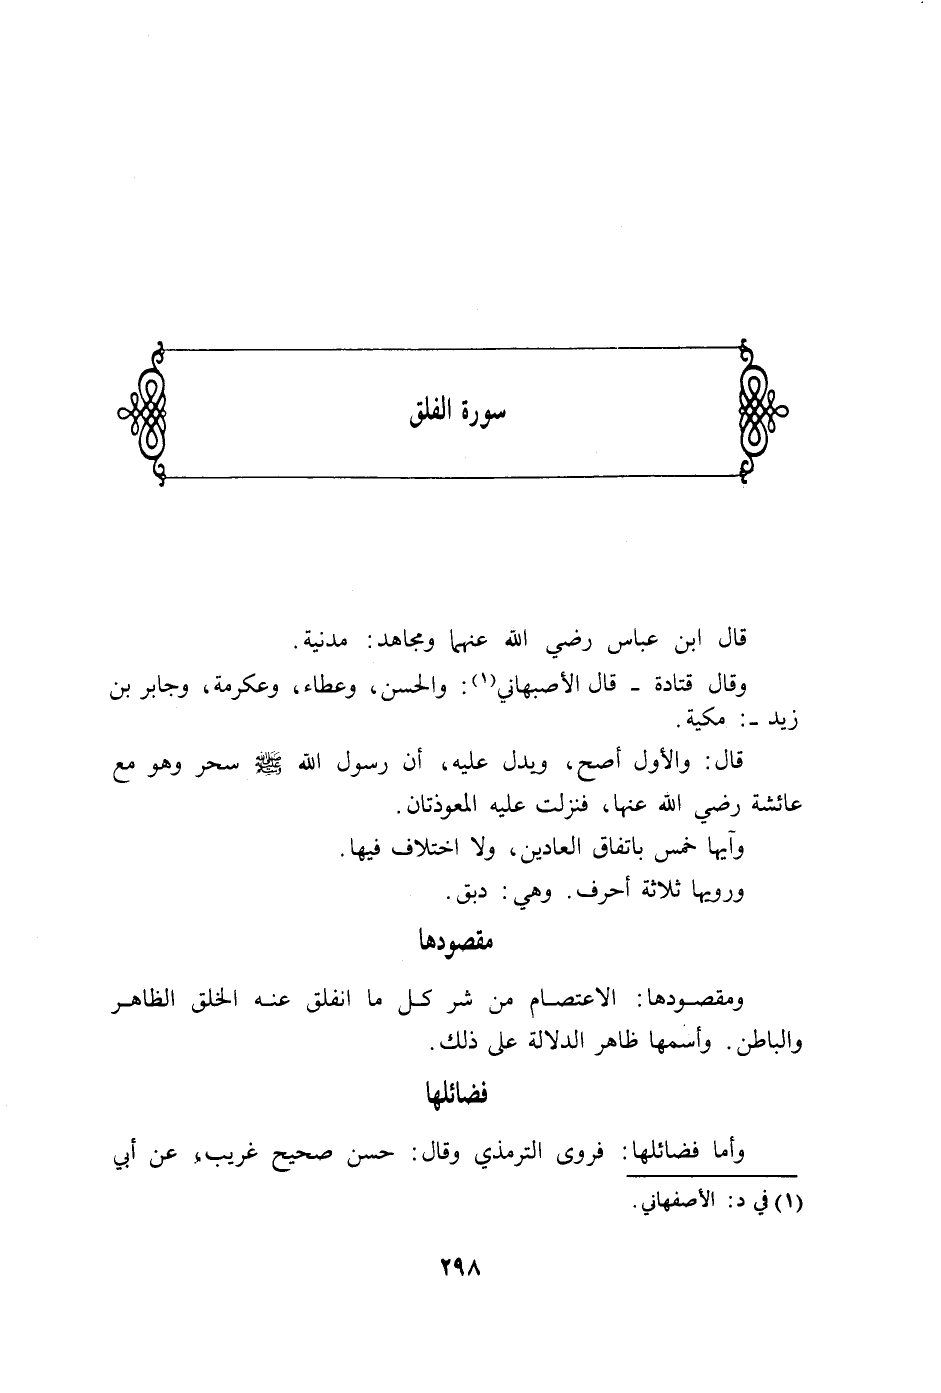 سورة الفلق
قال ابن عباس رضي الله عنهما ومجاهد: مدنية.
وقال قتادة ـ قال الأصبهاني(١): والحسن، وعطاء، وعكرمة، وجابر بن
زيد ـ: مكية.
قال: والأول أصح، ويدل عليه، أن رسول الله ﷺ سحر وهو مع
عائشة رضي الله عنها، فنزلت عليه المعوذتان.
وآيها خمس باتفاق العادين، ولا اختلاف فيها.
ورويها ثلاثة أحرف. وهي: دبق.
مقصودها
ومقصودها: الاعتصام من شر كل ما انفلق عنه الخلق الظاهر
والباطن. وأسمها ظاهر الدلالة على ذلك.
فضائلها
وأما فضائلها: فروى الترمذي وقال: حسن صحيح غريب، عن أبي
(١) في د: الأصفهاني.
٢٩٨